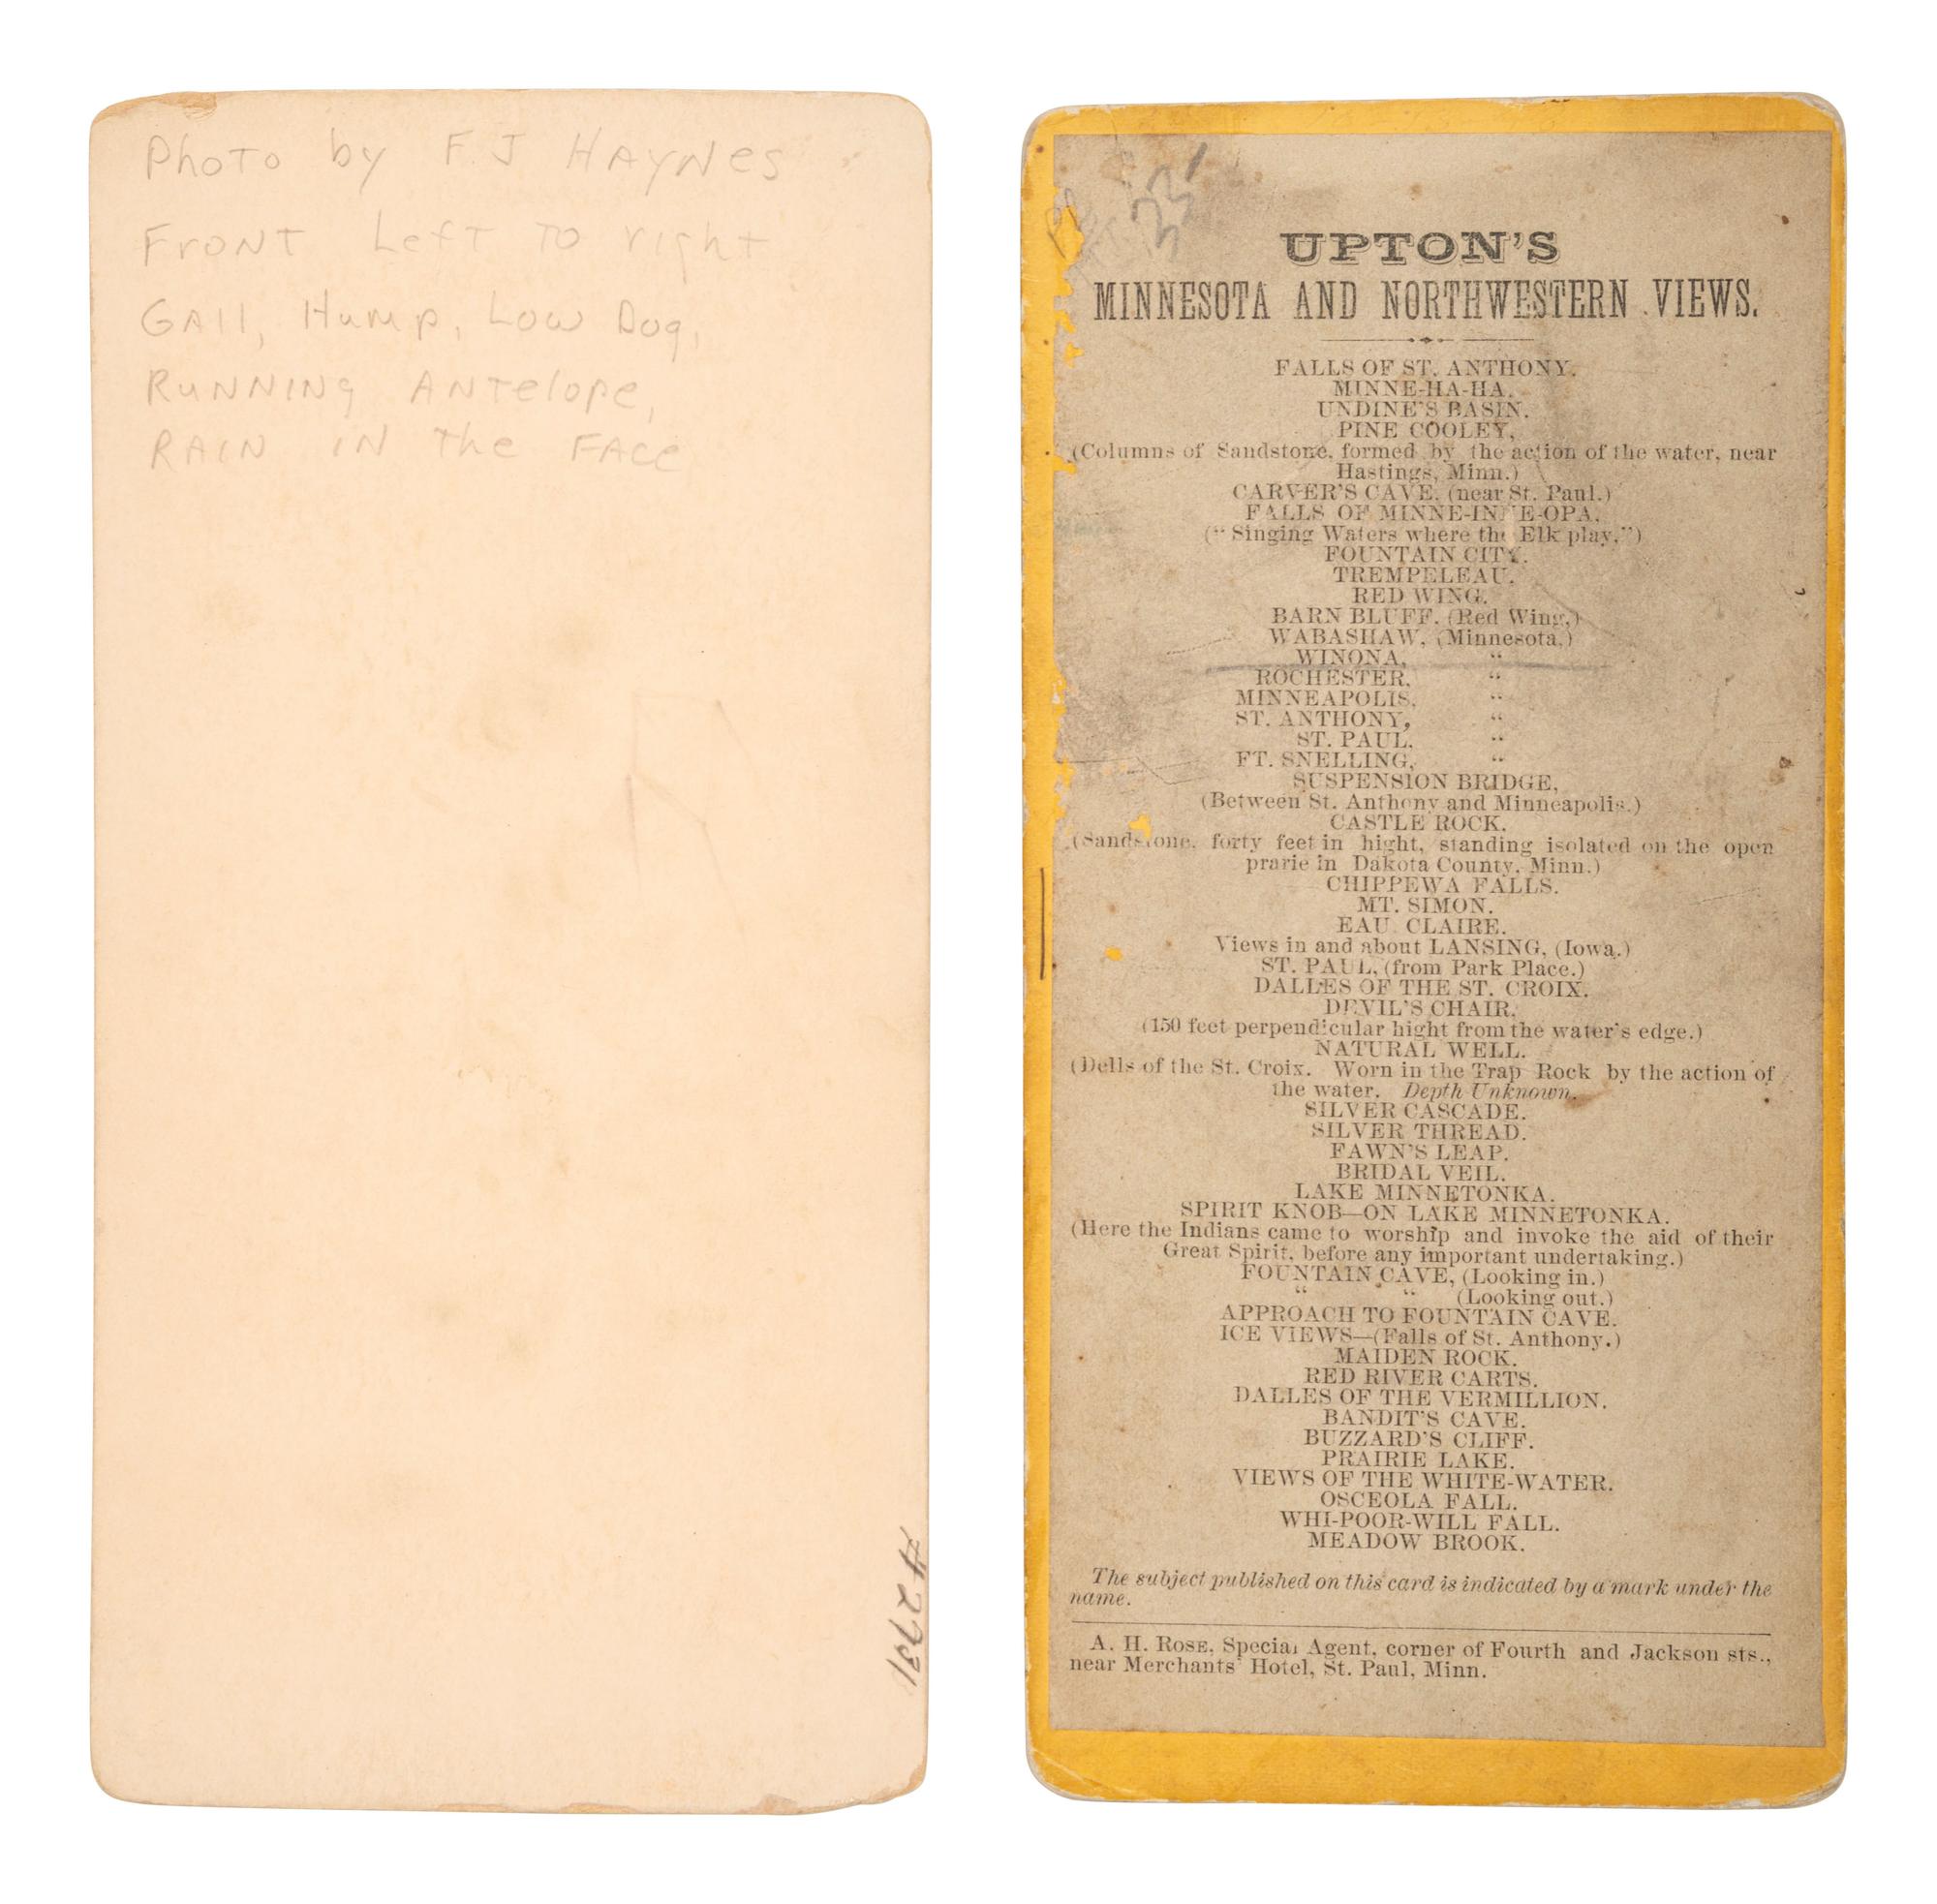 Photo by F. J HAYNES
FRONT Left TO right
GAll, Hump, Low Dog,
RUNNINg ANTelope,
RAIN IN The FACe
UPTON'S
MINNESOTA AND NORTHWESTERN VIEWS.
FALLS OF ST. ANTHONY.
MINNE-HA-HA.
UNDINE'S BASIN.
PINE COOLEY,
(Columns of Sandstone, formed by the action of the water, near
Hastings, Minn.)
CARVER'S CAVE. (near St. Paul.)
FALLS OF MINNE-INNE-OPA.
("Singing Waters where the Elk play.")
FOUNTAIN CITY.
TREMPELEAU.
RED WING.
BARN BLUFF. (Red Wing,)
WABASHAW, (Minnesota.)
WINONA, "
ROCHESTER, "
MINNEAPOLIS, "
ST. ANTHONY, "
ST. PAUL, "
FT. SNELLING, "
SUSPENSION BRIDGE,
(Between St. Anthony and Minneapolis.)
CASTLE ROCK.
(Sandstone, forty feet in hight, standing isolated on the open
prarie in Dakota County, Minn.)
CHIPPEWA FALLS.
MT. SIMON.
EAU CLAIRE.
Views in and about LANSING, (Iowa.)
ST. PAUL, (from Park Place.)
DALLES OF THE ST. CROIX.
DEVIL'S CHAIR,
(150 feet perpendicular hight from the water's edge.)
NATURAL WELL.
(Dells of the St. Croix. Worn in the Trap Rock by the action of
the water. Depth Unknown.
SILVER CASCADE.
SILVER THREAD.
FAWN'S LEAP.
BRIDAL VEIL.
LAKE MINNETONKA.
SPIRIT KNOB—ON LAKE MINNETONKA.
(Here the Indians came to worship and invoke the aid of their
Great Spirit, before any important undertaking.)
FOUNTAIN CAVE, (Looking in.)
" " (Looking out.)
APPROACH TO FOUNTAIN CAVE.
ICE VIEWS—(Falls of St. Anthony.)
MAIDEN ROCK.
RED RIVER CARTS.
DALLES OF THE VERMILLION.
BANDIT'S CAVE.
BUZZARD'S CLIFF.
PRAIRIE LAKE.
VIEWS OF THE WHITE-WATER.
OSCEOLA FALL.
WHI-POOR-WILL FALL.
MEADOW BROOK.
The subject published on this card is indicated by a mark under the
name.
A. H. ROSE, Special Agent, corner of Fourth and Jackson sts.,
near Merchants' Hotel, St. Paul, Minn.